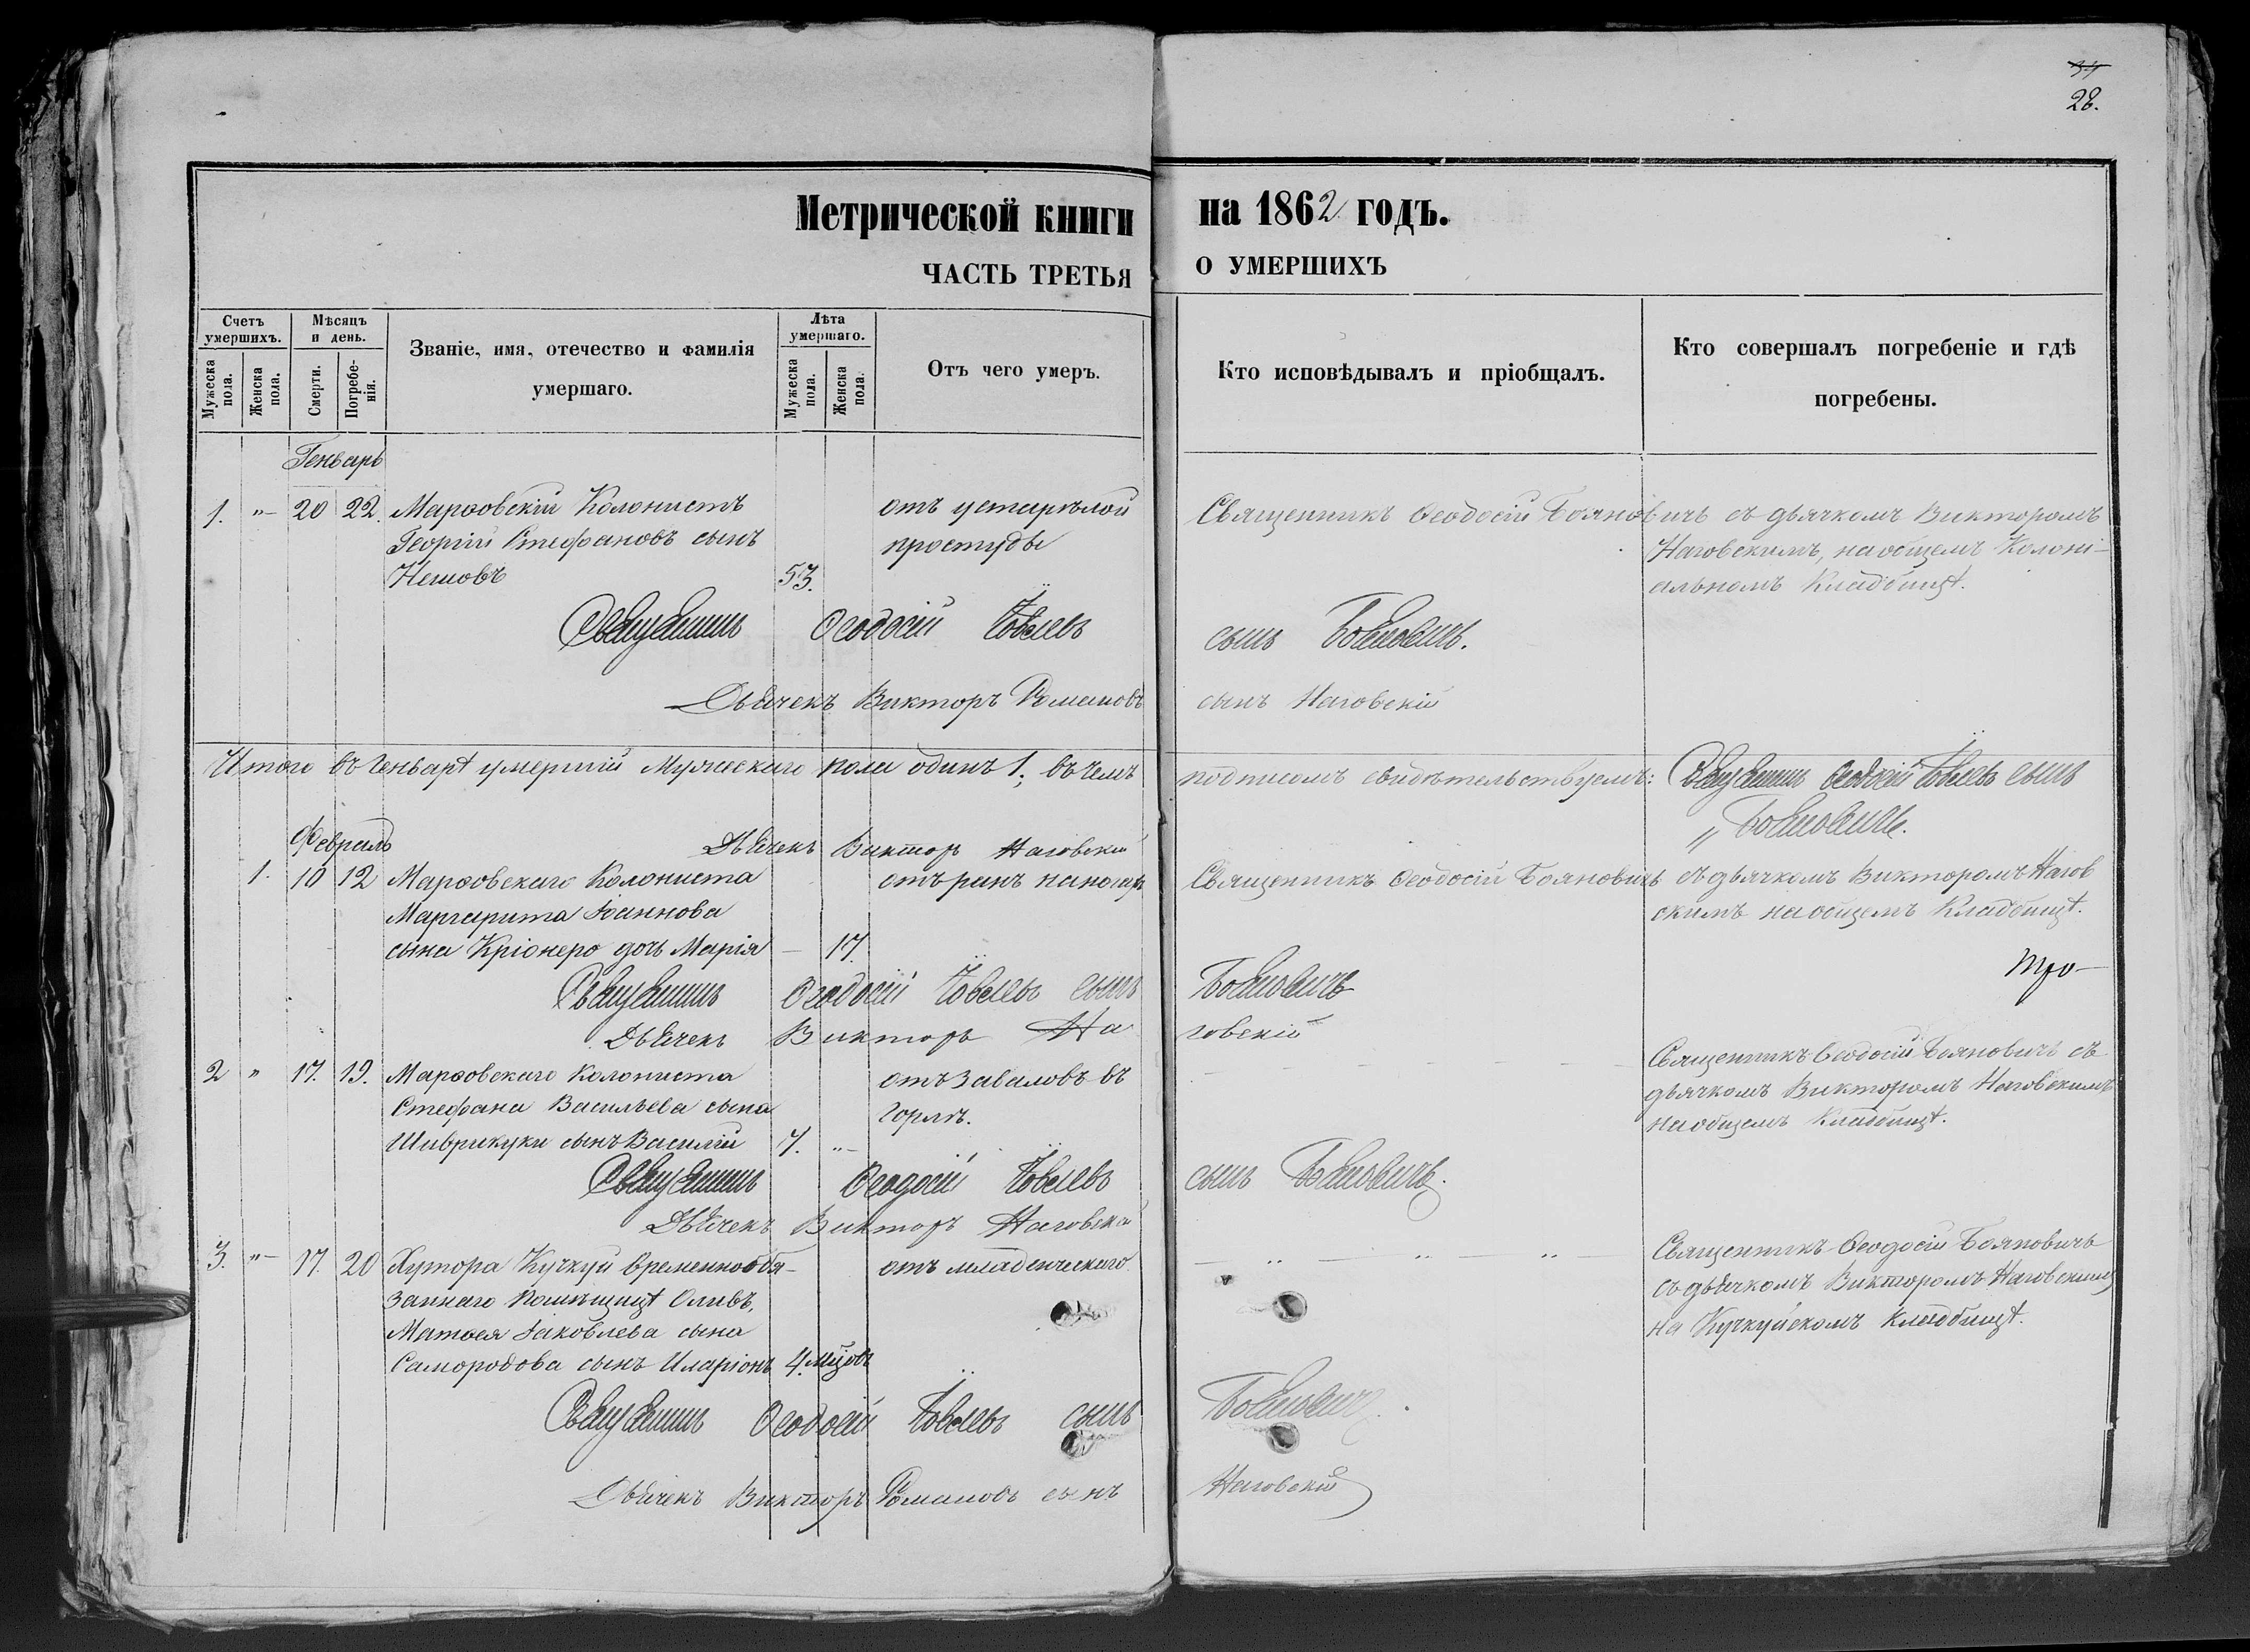 34
28.
Метрической книги на 1862 годъ.
ЧАСТЬ ТРЕТЬЯ О УМЕРШИХЪ
Счетъ умершихъ.
Мѣсяцъ и день.
Званіе, имя, отечество и фамилія умершаго.
Лѣта умершаго.
Отъ чего умеръ.
Кто исповѣдывалъ и пріобщалъ.
Кто совершалъ погребеніе и гдѣ погребены.
Мужеска пола.
Женска пола.
Смерти.
Погребенія.
Мужеска пола.
Женска пола.
Генварь
1. „ 20 22. Марѳовскій Колонистъ отъ устарѣлой Священникъ Ѳеодосій Бояновичъ съ дьячкомъ Викторомъ
Георгій Стефановъ сынъ простуды Наговскимъ, на общемъ Колоні-
Нешовъ 53. альномъ Кладбищѣ.
Священникъ Ѳеодосій Іовлевъ сынъ Бояновичъ.
Дьячекъ Викторъ Романовъ сынъ Наговскій
Итого въ Генварѣ умершій Мужескаго пола одинъ 1, въ чемъ подписомъ свидѣтельствуемъ: Священникъ Ѳеодосій Іовлевъ сынъ
„ Бояновичъ.
Дьячекъ Викторъ Наговскій
Февраль
1. 10 12 Марѳовскаго Колониста отъ ранъ на ногахъ Священникъ Ѳеодосій Бояновичъ съ дьячкомъ Викторомъ Нагов
Маргарита Іоаннова скимъ на общемъ Кладбищѣ.
сына Кріонеро дочь Марія — 17.
Тро-
Священникъ Ѳеодосій Іовлевъ сынъ Бояновичъ
Дьячекъ Викторъ Наговскій
2 „ 17. 19. Марѳовскаго Колониста отъ заваловъ въ Священникъ Ѳеодосій Бояновичъ съ
Стефана Васильева сына горлѣ. дьячкомъ Викторомъ Наговскимъ
Шиврикуки сынъ Василій 7. „ на общемъ Кладбищѣ.
Священникъ Ѳеодосій Іовлевъ сынъ Бояновичъ.
Дьячекъ Викторъ Наговскій
3. „ 17. 20 Хутора Кучкуй временнообя- отъ младенческаго Священникъ Ѳеодосій Бояновичъ
заннаго помѣщицѣ Оливъ, съ дьячкомъ Викторомъ Наговскимъ
Матѳея Іаковлева сына на Кучкуйскомъ Кладбищѣ.
Самородова сынъ Иларіонъ 4. мцовъ
Священникъ Ѳеодосій Іовлевъ сынъ Бояновичъ.
Дьячекъ Викторъ Романовъ сынъ Наговскій